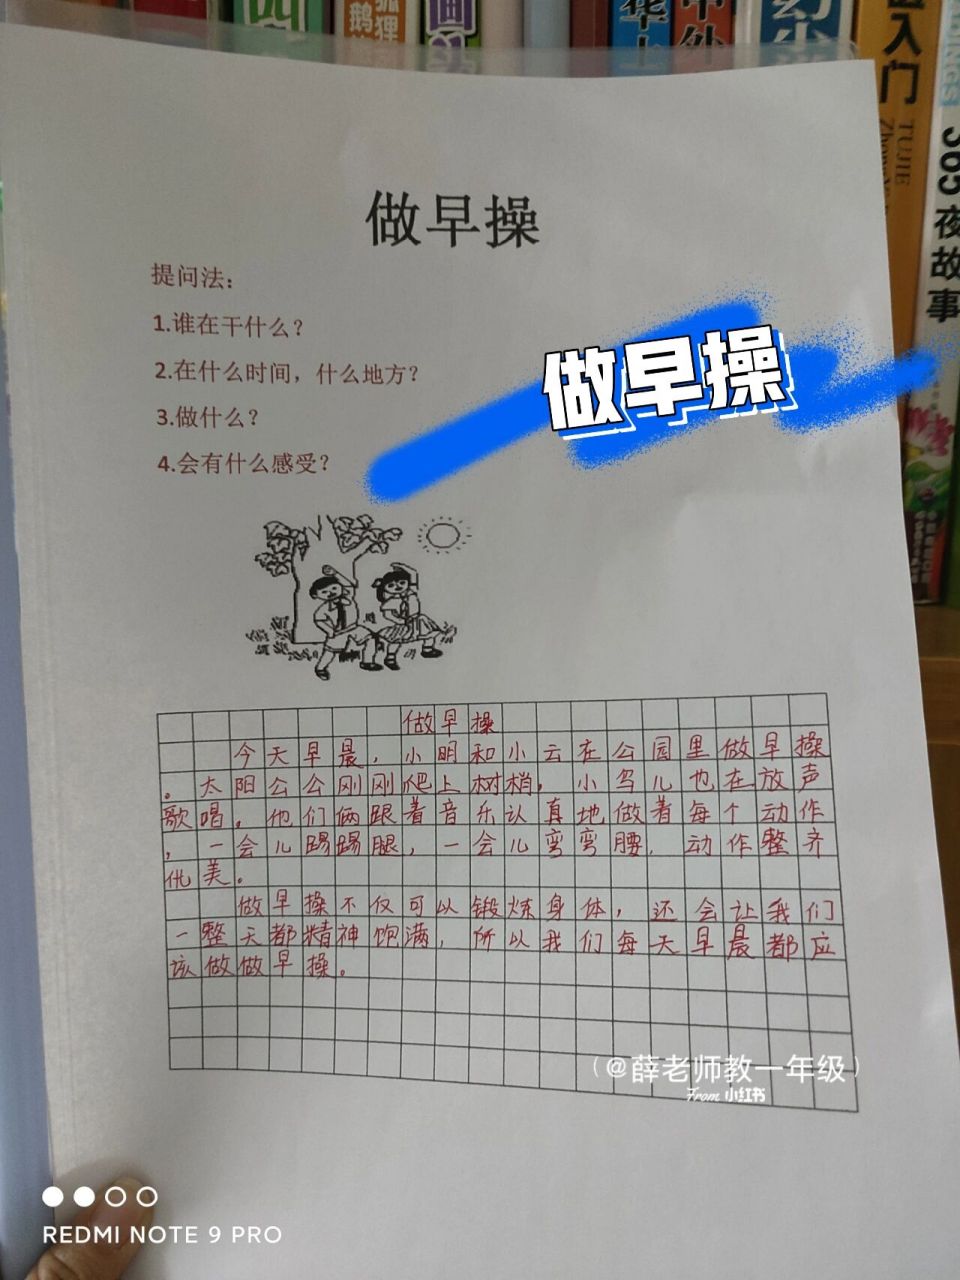 鹅
狐狸
画
华上
中外
幻
入门
TUJIE
365
夜故事
做早操
提问法：
1.谁在干什么？
2.在什么时间，什么地方？
3.做什么？
4.会有什么感受？
做早操
做早操
今天早晨，小明和小云在公园里做早操
。太阳公公刚刚爬上树梢，小鸟儿也在放声
歌唱。他们俩跟着音乐认真地做着每个动作
，一会儿踢踢腿，一会儿弯弯腰，动作整齐
优美。
做早操不仅可以锻炼身体，还会让我们
一整天都精神饱满，所以我们每天早晨都应
该做做早操。
（@薛老师教一年级）
From 小红书
REDMI NOTE 9 PRO